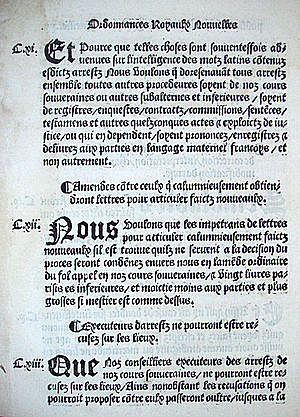 Ordonnances Royaulx Nouuelles
C.xi. Et Pource que telles choses sont souuentesfois ad-
uenues sur lintelligence des motz latins cõtenuz
esdictz arrestz Nous voulons q̃ doresenauãt tous arrestz
ensemble toutes autres procedeures soyent de noz cours
souueraines ou autres subalternes et inferieures, soyent
de registres, enquestes, contractz, commissions, sentẽces,
testamens et autres quelzconques actes ⁊ exploictz de iu-
stice, ou qui en dependent, soyent prononcez, enregistrez ⁊
deliurez aux parties en langage maternel francoys, et
non autrement.
¶ Amendes cõtre ceulx q̃ calumnieusement obtien-
dront lettres pour articuler faictz nouueaulx.
C.xii. Nous Voulons que les impetrans de lettres
pour articuler calumnieusement faictz
nouueaulx sil est trouue quilz ne seruent a la decision du
proces seront condẽnez enuers nous en lamẽde ordinaire
du fol appel en noz cours souueraines, ⁊ vingt liures pa-
risis es inferieures, et moictie moins aux parties et plus
grosses si mestier est comme dessus.
¶ Executeurs darrestz ne pourront estre re-
cusez sur les lieux.
C.xiii. Que Noz conseilliers executeurs des arrestz de
noz cours souueraines, ne pourront estre re-
cusez sur les lieux / Ains nonobstant les recusations q̃ on
pourroit proposer cõtre eulx passeront oultre, iusques a la